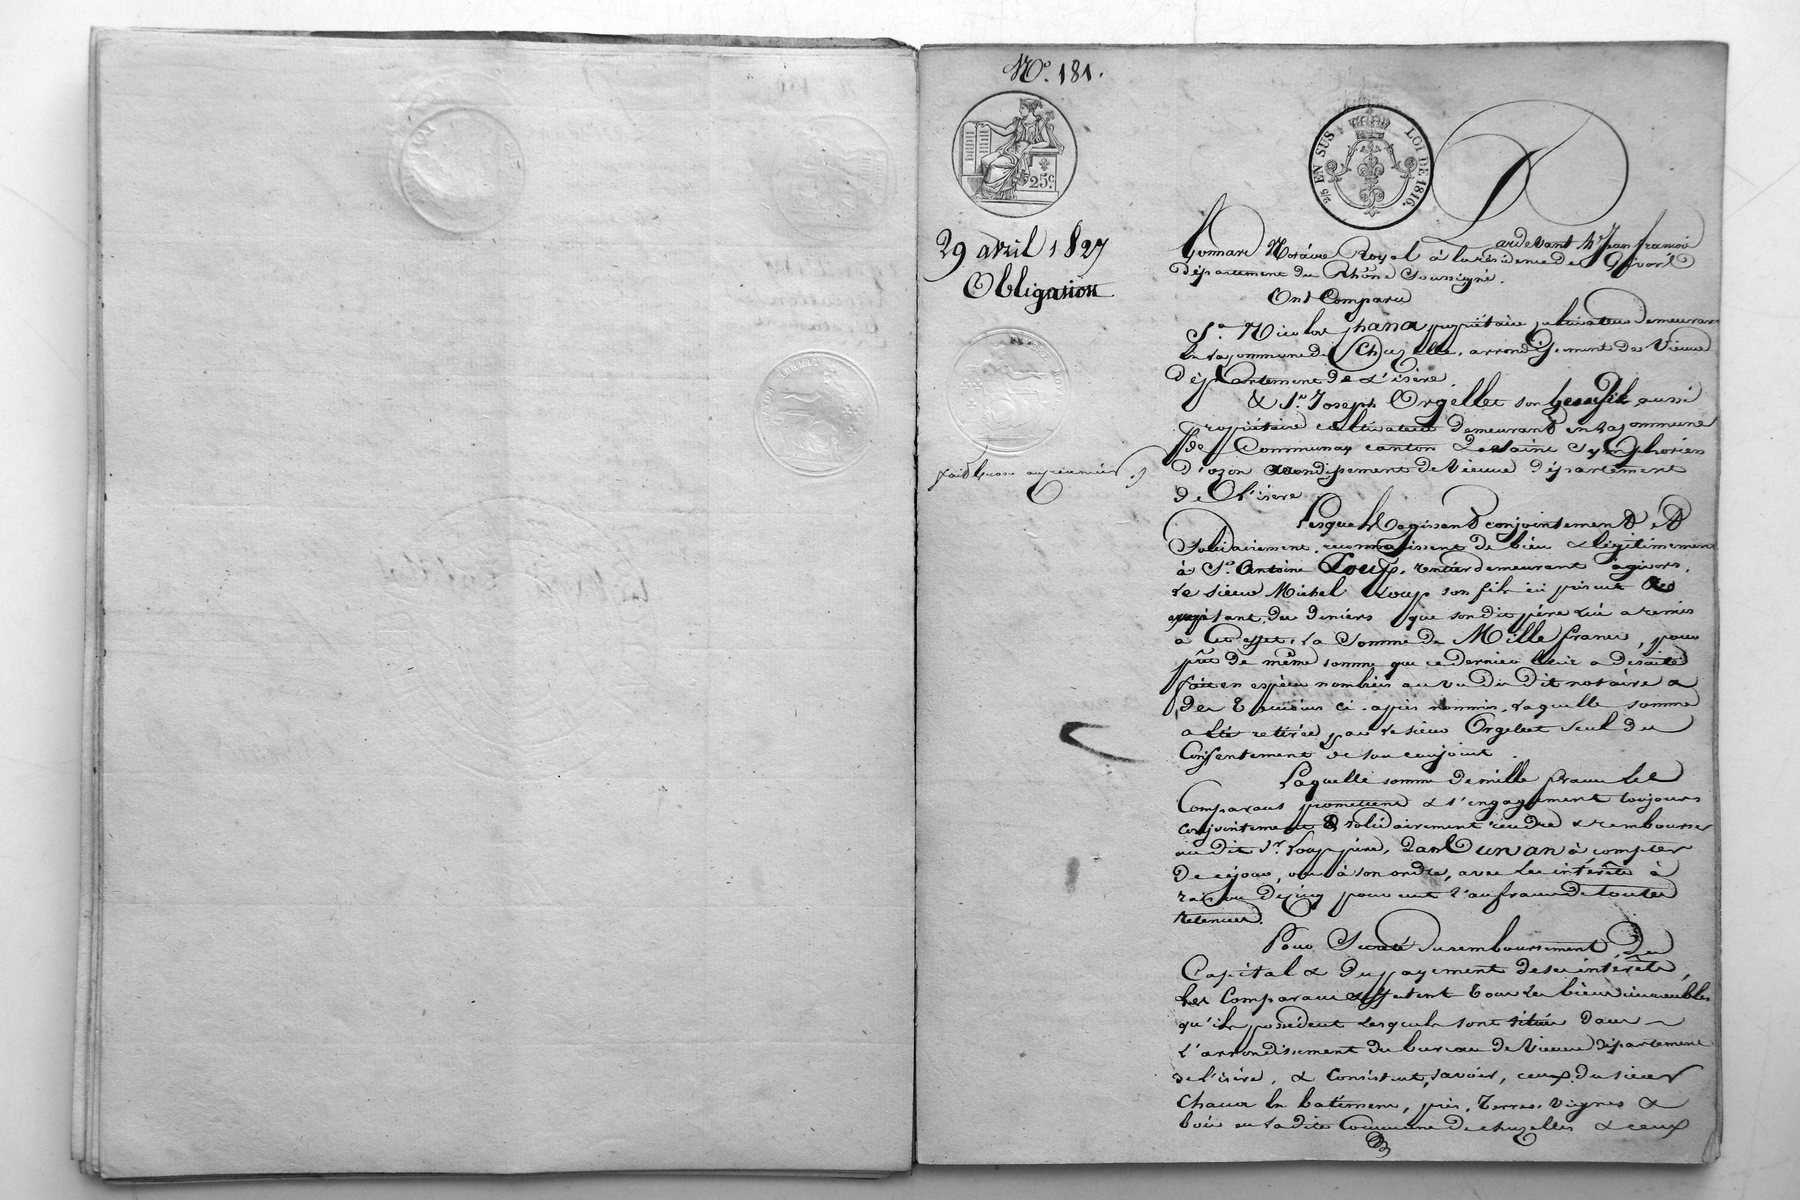 N°. 181.
25c.
2/5 EN SUS LOI DE 1816.
29 avril 1827
Obligation
Pardevant Me Jean francois
Gonnard Notaire Royal à la résidence de Givors
département du Rhône Soussigné.
Ont Comparu
Sr. Nicolas propriétaire cultivateur demeurant
en la commune de Chuzelle, arrondissement de Vienne
département de L'isère.
& Sr. Joseph Orgellet son aussi
propriétaire cultivateur demeurant en la commune
de Communay canton de Saint Symphorien
D'ozon arrondissement de Vienne département
de L'isère.
Lesquels agissant conjointement et
Solidairement, reconnaissent de bien & légitimement
à Sr. Antoine Loup, rentier demeurant a givors,
le sieur Michel Loup son fils ici présent &
des deniers que son dit père lui a remis
a Cet effet, la Somme de Mille francs, pour
prêt de même somme que ce dernier leur a
fait en espèces nombrées au vu du dit notaire &
des témoins ci-après nommés, laquelle somme
a été retirée par le sieur Orgellet seul du
Consentement de son conjoint.
Laquelle somme de mille francs les
Comparans promettent & s'engagement toujours
conjointement & solidairement rendre & rembourser
au dit Sr. Loup père, dans un an à compter
De ce jour, ou à son ordre, avec les intérêts à
raison de cinq pour cent l'an francs de toutes
retenues.
Pour Sureté du remboursement du
Capital & du payement de ses intérêts,
Les Comparans affectent tous les biens immeubles
qu'ils possèdent lesquels sont situés dans
L'arrondissement du bureau de Vienne département
de l'isère, & consistent, savoir, ceux du sieur
en batiment, près, terres, vignes &
bois en la dite Commune de chuzelles & ceux